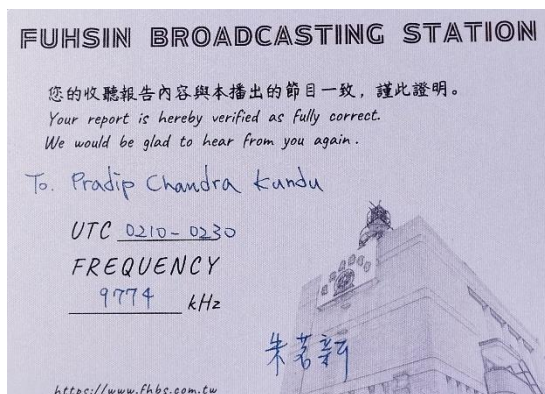 FUHSIN BROADCASTING STATION
您的收聽報告內容與本播出的節目一致，謹此證明。
Your report is hereby verified as fully correct.
We would be glad to hear from you again.
To. Pradip Chandra Kundu
UTC 0210-0230
FREQUENCY
9774 kHz
朱茗新
https://www.fhbs.com.tw